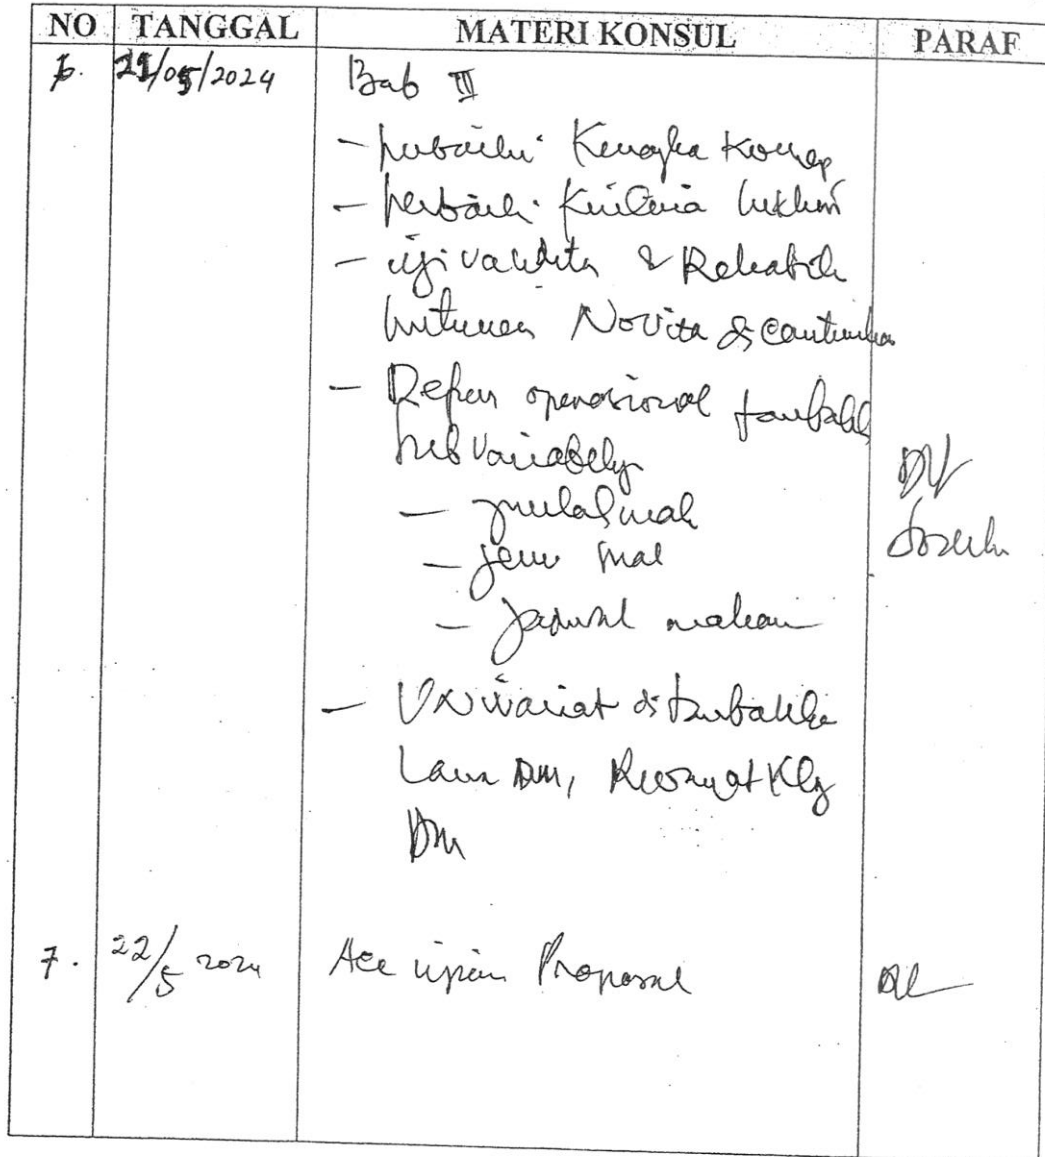 NO TANGGAL MATERI KONSUL PARAF
6. 21/05/2024 Bab III
- perbaiki Kerangka Konsep
- perbaiki Kriteria Inklusi
- uji validitas & Reliabili
Novita dicantumkan
- Defen operasional tambahk
sub variabelny
- jumlah mak
- jenis mak
- jadwal makan
- Univariat ditambahka
Lama DM, Riwayat Klg
DM
7. 22/5 2024 Acc ujian Proposal